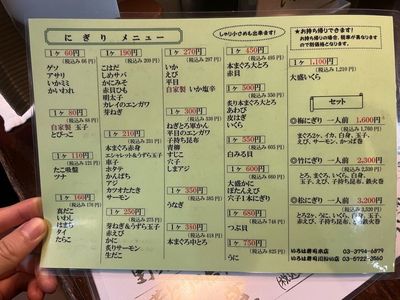 にぎり メニュー
しゃり小さめも出来ます!
1ケ 60円
(税込み 66円)
ゲソ
アサリ
いかミミ
かいわれ
1ケ 80円
(税込み 88円)
自家製 玉子
とびっこ
1ケ 110円
(税込み 121円)
たこ吸盤
ツナ
1ケ 160円
(税込み 176円)
真だこ
いわし
はまち
タイ
たらこ
1ケ 190円
(税込み 209円)
こはだ
しめサバ
かにみそ
赤貝ひも
明太子
カレイのエンガワ
芽ねぎ
1ケ 210円
(税込み 231円)
本まぐろ赤身
エシャレット&うずら玉子
車子
ホタテ
かんぱち
アジ
カツオたたき
サーモン
1ケ 250円
(税込み 275円)
芽ねぎ&うずら玉子
赤えび
かに
炙りサーモン
生だこ
1ケ 270円
(税込み 297円)
いか
えび
平目
自家製 いか塩辛
1ケ 300円
(税込み 330円)
ねぎとろ軍かん
平目のエンガワ
子持ち昆布
青柳
すじこ
穴子
しまアジ
1ケ 350円
うなぎ
1ケ 380円
本まぐろ中とろ
1ケ 450円
(税込み 495円)
本まぐろ大とろ
赤貝
1ケ 500円
(税込み 550円)
炙り本まぐろ大とろ
あわび
皮はぎ
いくら
1ケ 550円
(税込み 605円)
白みる貝
1ケ 600円
(税込み 660円)
大盛かに
ぼたんえび
穴子1本にぎり
1ケ 680円
(税込み 748円)
つぶ貝
1ケ 750円
(税込み 825円)
うに
★お持ち帰りできます!
お持ち帰りの場合、税率が異なりますので割価格となります。
1ケ 1,100円
(税込み 1,210円)
大盛いくら
セット
◎梅にぎり 一人前 1,600円
(税込み 1,760円)
まぐろ2ケ、イカ、白身、玉子、
えび、サーモン、かっぱ巻
◎竹にぎり 一人前 2,300円
(税込み 2,530円)
とろ、いくら、いか、白身、玉子、
えび、子持ち昆布、鉄火巻
◎松にぎり 一人前 3,200円
(税込み 3,520円)
とろ2ケ、うに、いくら、白身、玉子、
赤貝、えび、いか、鉄火巻
いろは寿司本店 03-3794-6879
いろは寿司目黒川の店 03-5722-3560